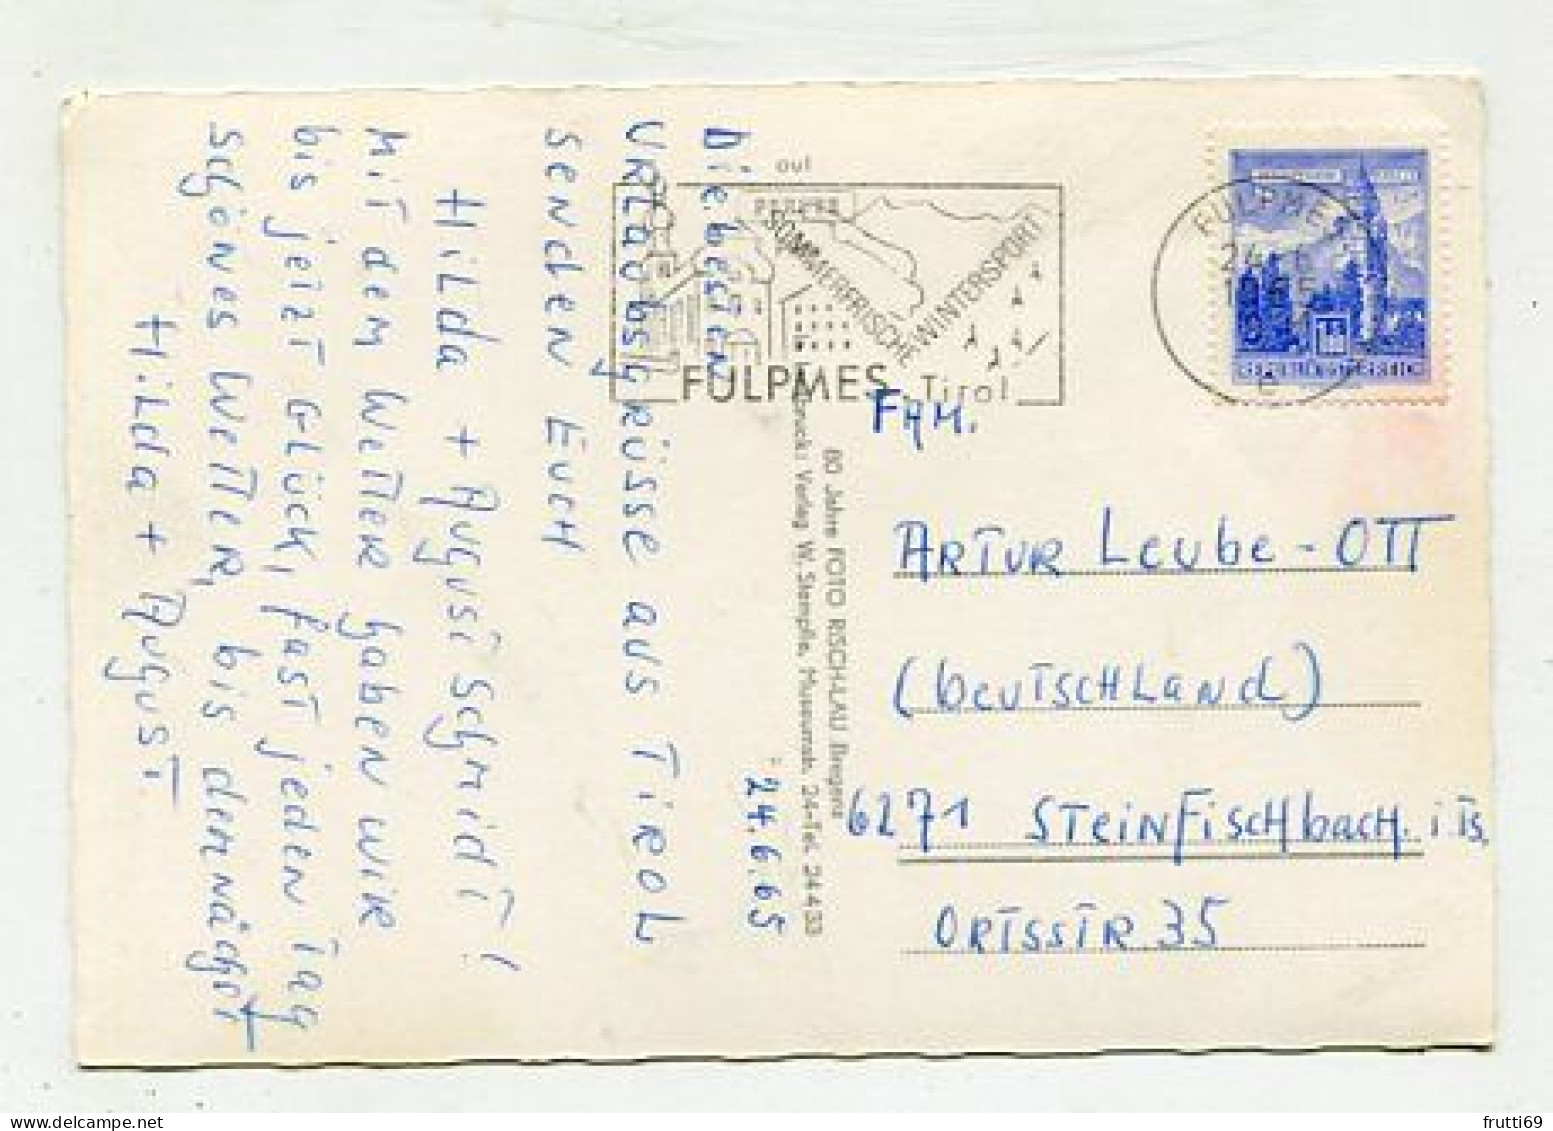 24.6.65
Die besten
Urlaubsgrüsse aus Tirol
senden Euch
Hilda + August Schmidt!
Mit dem Wetter haben wir
bis jetzt Glück, fast jeden Tag
schönes Wetter, bis demnächst
Hilda + August.
aut
SOMMERFRISCHE WINTERSPORT
FULPMES, Tirol
FULPMES
24
REPUBLIK ÖSTERREICH
80 Jahre FOTO RISCH-LAU Bregenz
Verlag W. Stempfle, Museumstr. 24-Tel. 24 4 33
Fam.
Artur Leube-Ott
(Deutschland)
6271 Steinfischbach. i. Ts.
Ortsstr 35
frutti69